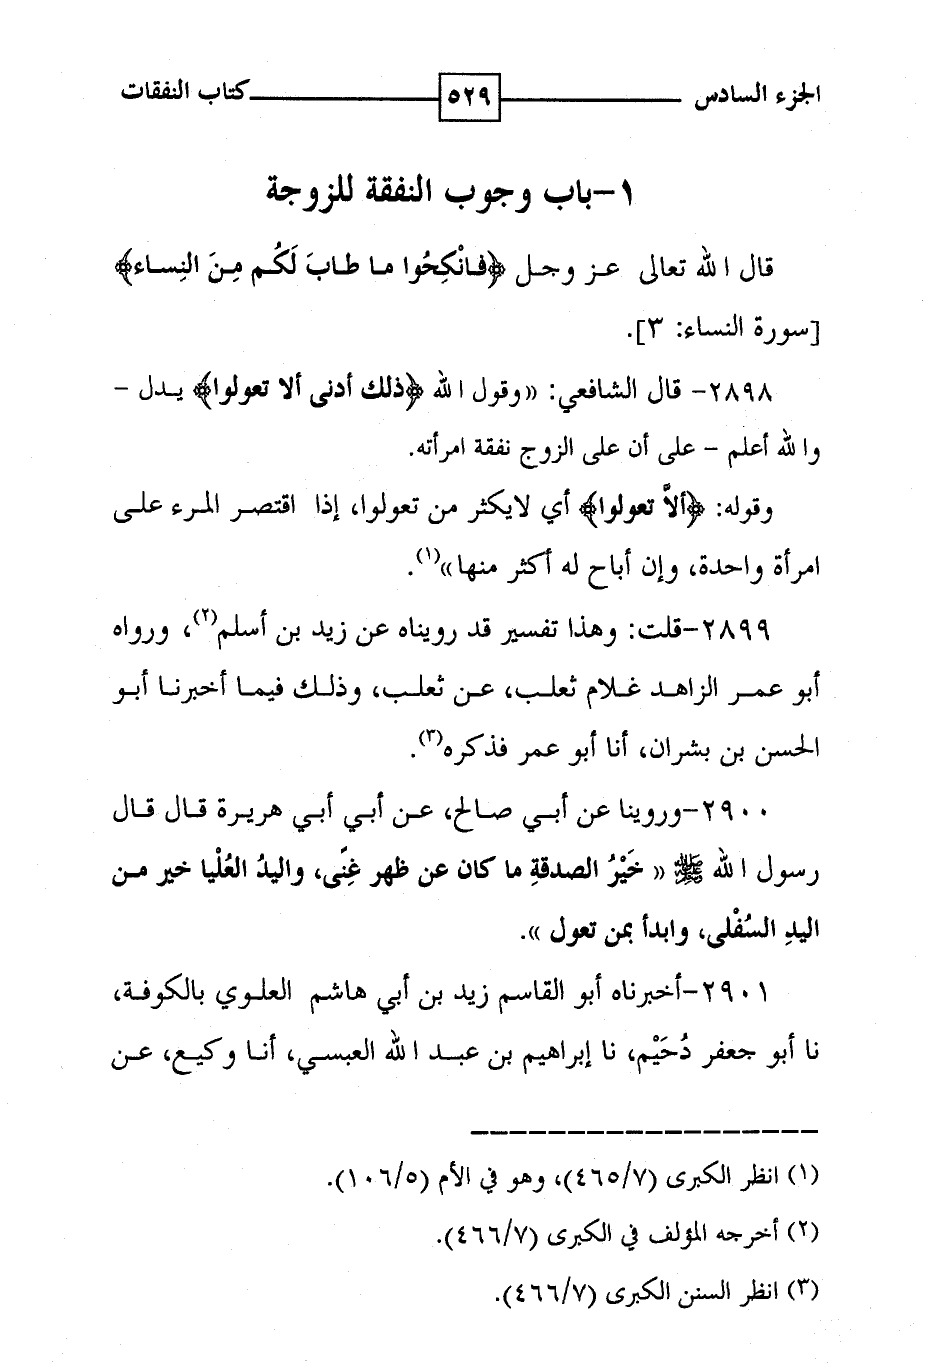 الجزء السادس ٥٢٩ كتاب النفقات
١-باب وجوب النفقة للزوجة
قال الله تعالى عز وجل ﴿فَانْكِحُوا ما طابَ لَكُم مِنَ النِساء﴾
[سورة النساء: ٣].
٢٨٩٨- قال الشافعي: «وقول الله ﴿ذلك أدنى ألا تعولوا﴾ يدل -
والله أعلم - على أن على الزوج نفقة امرأته.
وقوله: ﴿ألاَّ تعولوا﴾ أي لايكثر من تعولوا، إذا اقتصر المرء على
امرأة واحدة، وإن أباح له أكثر منها»(١).
٢٨٩٩-قلت: وهذا تفسير قد رويناه عن زيد بن أسلم(٢)، ورواه
أبو عمر الزاهد غلام ثعلب، عن ثعلب، وذلك فيما أخبرنا أبو
الحسن بن بشران، أنا أبو عمر فذكره(٣).
٢٩٠٠-وروينا عن أبي صالح، عن أبي أبي هريرة قال قال
رسول الله ﷺ « خَيْرُ الصدقةِ ما كان عن ظهر غِنًى، واليدُ العُلْيا خير من
اليدِ السُفْلى، وابدأ بمن تعول ».
٢٩٠١-أخبرناه أبو القاسم زيد بن أبي هاشم العلوي بالكوفة،
نا أبو جعفر دُحَيْم، نا إبراهيم بن عبد الله العبسي، أنا وكيع، عن
(١) انظر الكبرى (٤٦٥/٧)، وهو في الأم (١٠٦/٥).
(٢) أخرجه المؤلف في الكبرى (٤٦٦/٧).
(٣) انظر السنن الكبرى (٤٦٦/٧).